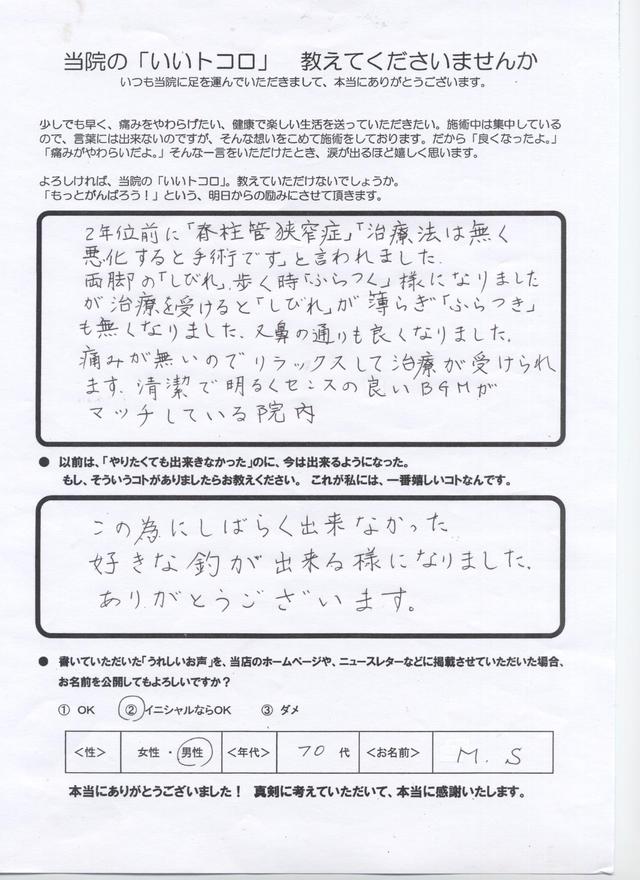 当院の「いいトコロ」　教えてくださいませんか
いつも当院に足を運んでいただきまして、本当にありがとうございます。
少しでも早く、痛みをやわらげたい、健康で楽しい生活を送っていただきたい。施術中は集中している
ので、言葉には出来ないのですが、そんな想いをこめて施術をしております。だから「良くなったよ。」
「痛みがやわらいだよ。」そんな一言をいただけたとき、涙が出るほど嬉しく思います。
よろしければ、当院の「いいトコロ」。教えていただけないでしょうか。
「もっとがんばろう！」という、明日からの励みにさせて頂きます。
2年位前に「脊柱管狭窄症」「治療法は無く
悪化すると手術です」と言われました.
両脚の「しびれ」.歩く時「ふらつく」様になりました
が治療を受けると「しびれ」が薄らぎ「ふらつき」
も無くなりました、又鼻の通りも良くなりました.
痛みが無いのでリラックスして治療が受けられ
ます.清潔で明るくセンスの良いBGMが
マッチしている院内
● 以前は、「やりたくても出来きなかった」のに、今は出来るようになった。
もし、そういうコトがありましたらお教えください。 これが私には、一番嬉しいコトなんです。
この為にしばらく出来なかった
好きな釣が出来る様になりました.
ありがとうございます。
● 書いていただいた「うれしいお声」を、当店のホームページや、ニュースレターなどに掲載させていただいた場合、
お名前を公開してもよろしいですか？
① OK　② イニシャルならOK　③ ダメ
＜性＞ 女性 ・ 男性 ＜年代＞ 70 代 ＜お名前＞ M. S
本当にありがとうございました！　真剣に考えていただいて、本当に感謝いたします。